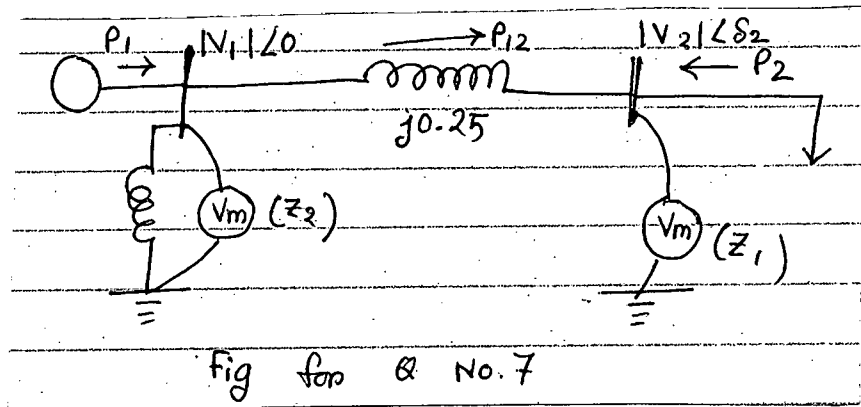 P1
|V1|∠0
P12
|V2|∠δ2
P2
j0.25
Vm
(Z2)
Vm
(Z1)
Fig for Q No. 7